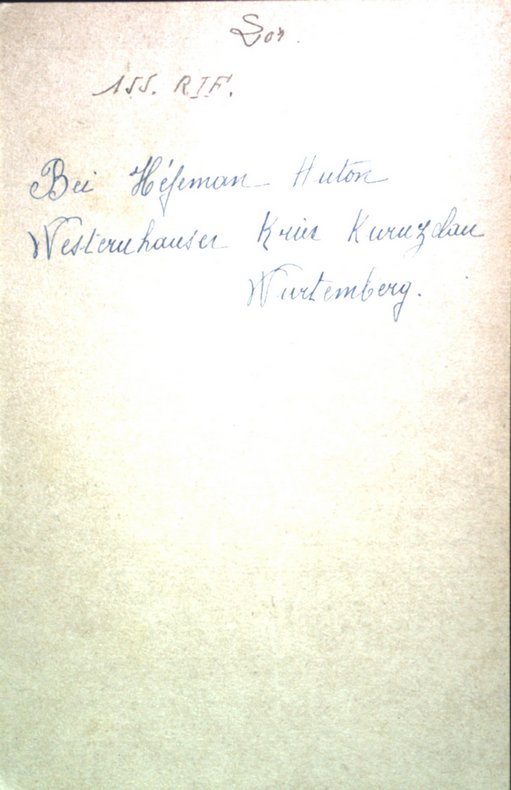 155. RIF.
Bei Héseman Anton
Westernhauser Kries Kurnzelau
Wurtemberg.